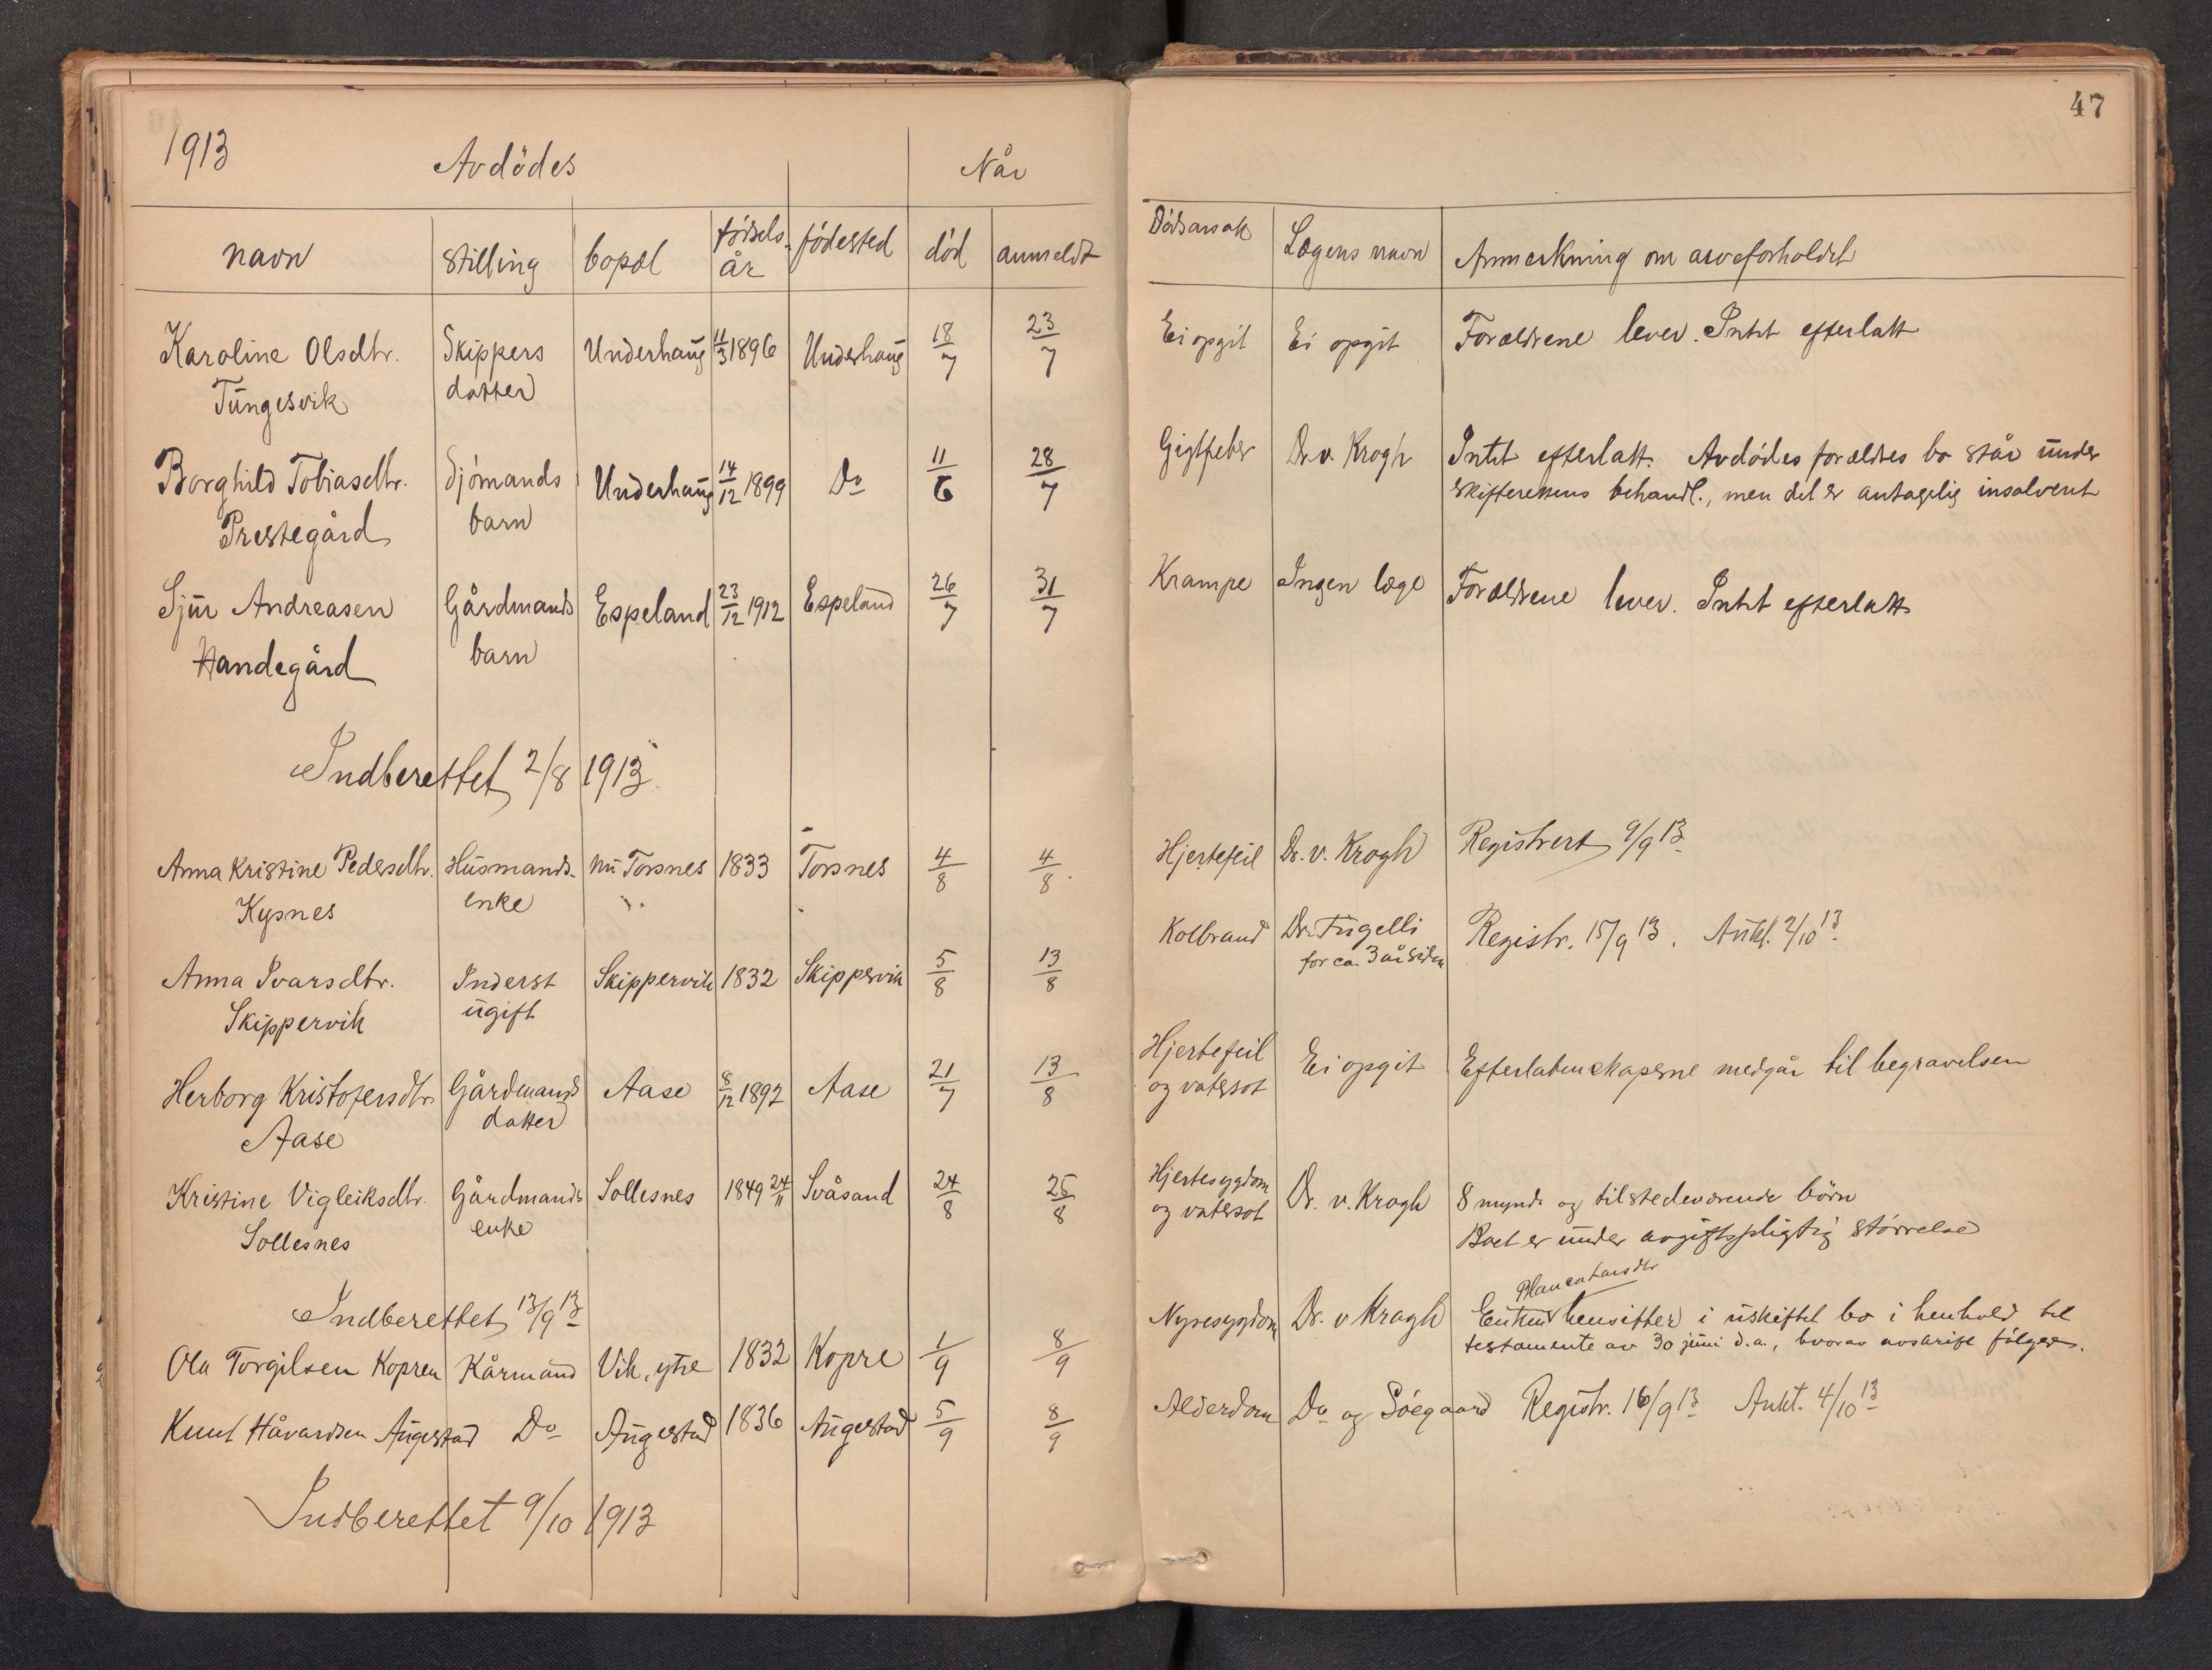 1913
Avdödes
Når
navn
stilling
bopæl
fødsels-
år
fødested
död
anmeldt
Karoline Olsdtr.
Tungesvik
Skippers
datter
Underhaug
11/3 1896
Underhaug
18/7
23/7
Borghild Tobiasdtr.
Prestegård
Sjömands
barn
Underhaug
14/12 1899
Do
11/6
28/7
Sjur Andreasen
Handegård
Gårdmands
barn
Espeland
23/12 1912
Espeland
26/7
31/7
Indberettet 2/8 1913
Anna Kristine Pedersdtr.
Kysnes
Husmands-
enke
nu Torsnes
1833
Torsnes
4/8
4/8
Anna Ivarsdtr.
Skippervik
Inderst
ugift
Skippervik
1832
Skippervik
5/8
13/8
Herborg Kristofersdtr
Aase
Gårdmands
datter
Aase
8/12 1892
Aase
21/7
13/8
Kristine Vigleiksdtr.
Sollesnes
Gårdmands
enke
Sollesnes
1849 24/11
Svåsand
24/8
25/8
Indberettet 13/9 13
Ola Torgilsen Kopren
Kårmand
Vik, ytre
1832
Kopre
1/9
8/9
Knut Håvardsen Augestad
Do
Augestad
1836
Augestad
5/9
8/9
Indberettet 9/10 1913
47
Dödsarsak
Lægens navn
Anmerkning om arveforholdet
Ei opgit
Ei opgit
Forældrene lever. Intet efterlatt
Gigtfeber
Dr. v. Krogh
Intet efterlatt. Avdödes forældres bo står under
skifterettens behandl., men det er antagelig insolvent
Krampe
Ingen læge
Forældrene lever. Intet efterlatt
Hjertefeil
Dr. v. Krogh
Registrert 9/9 13
Kolbrand
Dr. Fugelli
for ca. 3 år siden
Registr. 15/9 13. Aukt. 2/10 13.
Hjertefeil
og vatersot
Ei opgit
Efterlatenskaperne medgår til begravelsen
Hjertesygdom
og vatersot
Dr. v. Krogh
8 mynd. og tilstedeværende börn
Boet er under avgiftspligtig störrelse
Nyresygdom
Dr. v Krogh
Enken hensitter i uskiftet bo i henhold til
testamente av 30 juni d.a., hvorav avskrift fölger.
Alderdom
Do og Söegaard
Registr. 16/9 13 Aukt. 4/10 13